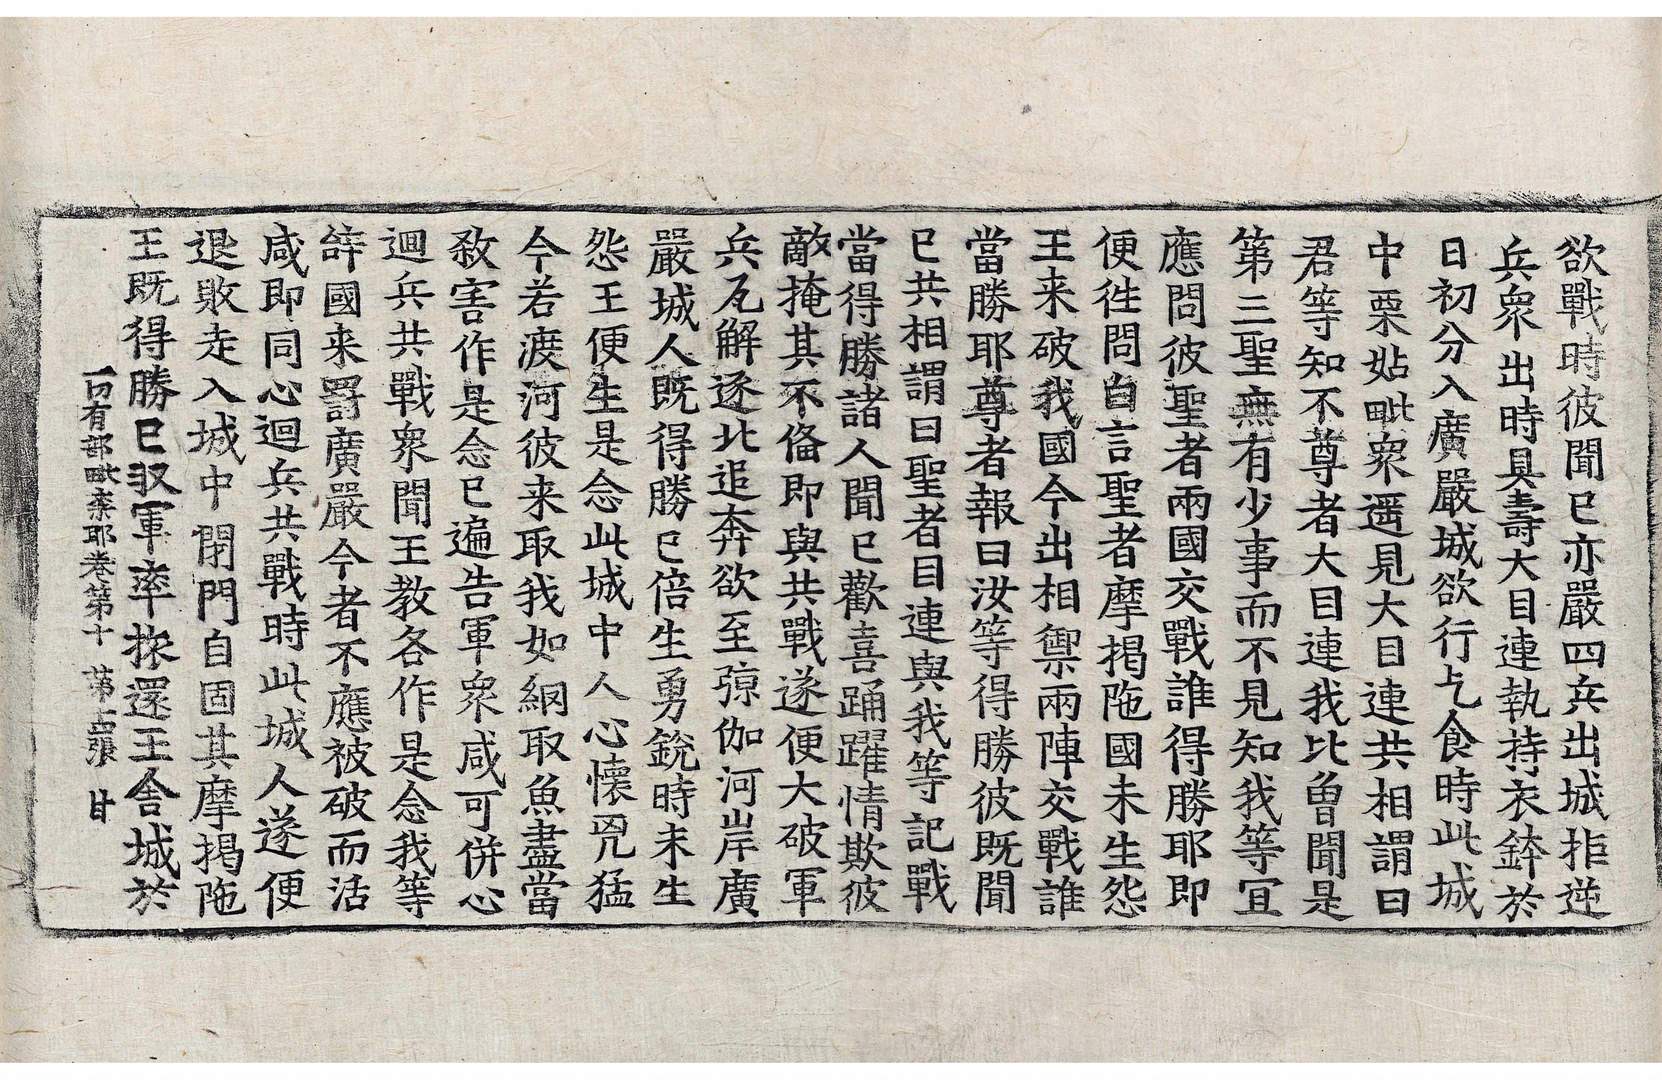 欲戰時彼聞已亦嚴四兵出城拒逆
兵衆出時具壽大目連執持衣鉢於
日初分入廣嚴城欲行乞食時此城
中栗姑毗衆遥見大目連共相謂曰
君等知不尊者大目連我比曾聞是
第三聖無有少事而不見知我等宜
應問彼聖者兩國交戰誰得勝耶即
便往問白言聖者摩揭陁國未生怨
王来破我國今出相禦兩陣交戰誰
當勝耶尊者報曰汝等得勝彼既聞
已共相謂曰聖者目連與我等記戰
當得勝諸人聞已歡喜踊躍情欺彼
敵掩其不俻即與共戰遂便大破軍
兵瓦解逐北追奔欲至弶伽河岸廣
嚴城人既得勝已倍生勇銳時未生
怨王便生是念此城中人心懷兇猛
今若渡河彼来取我如網取魚盡當
殺害作是念已遍告軍衆咸可併心
迴兵共戰衆聞王教各作是念我等
辞國来罸廣嚴今者不應被破而活
咸即同心迴兵共戰時此城人遂便
退敗走入城中閇門自固其摩揭陁
王既得勝已収軍率旅還王舍城於
一切有部毗奈耶卷第十 第十四張 甘